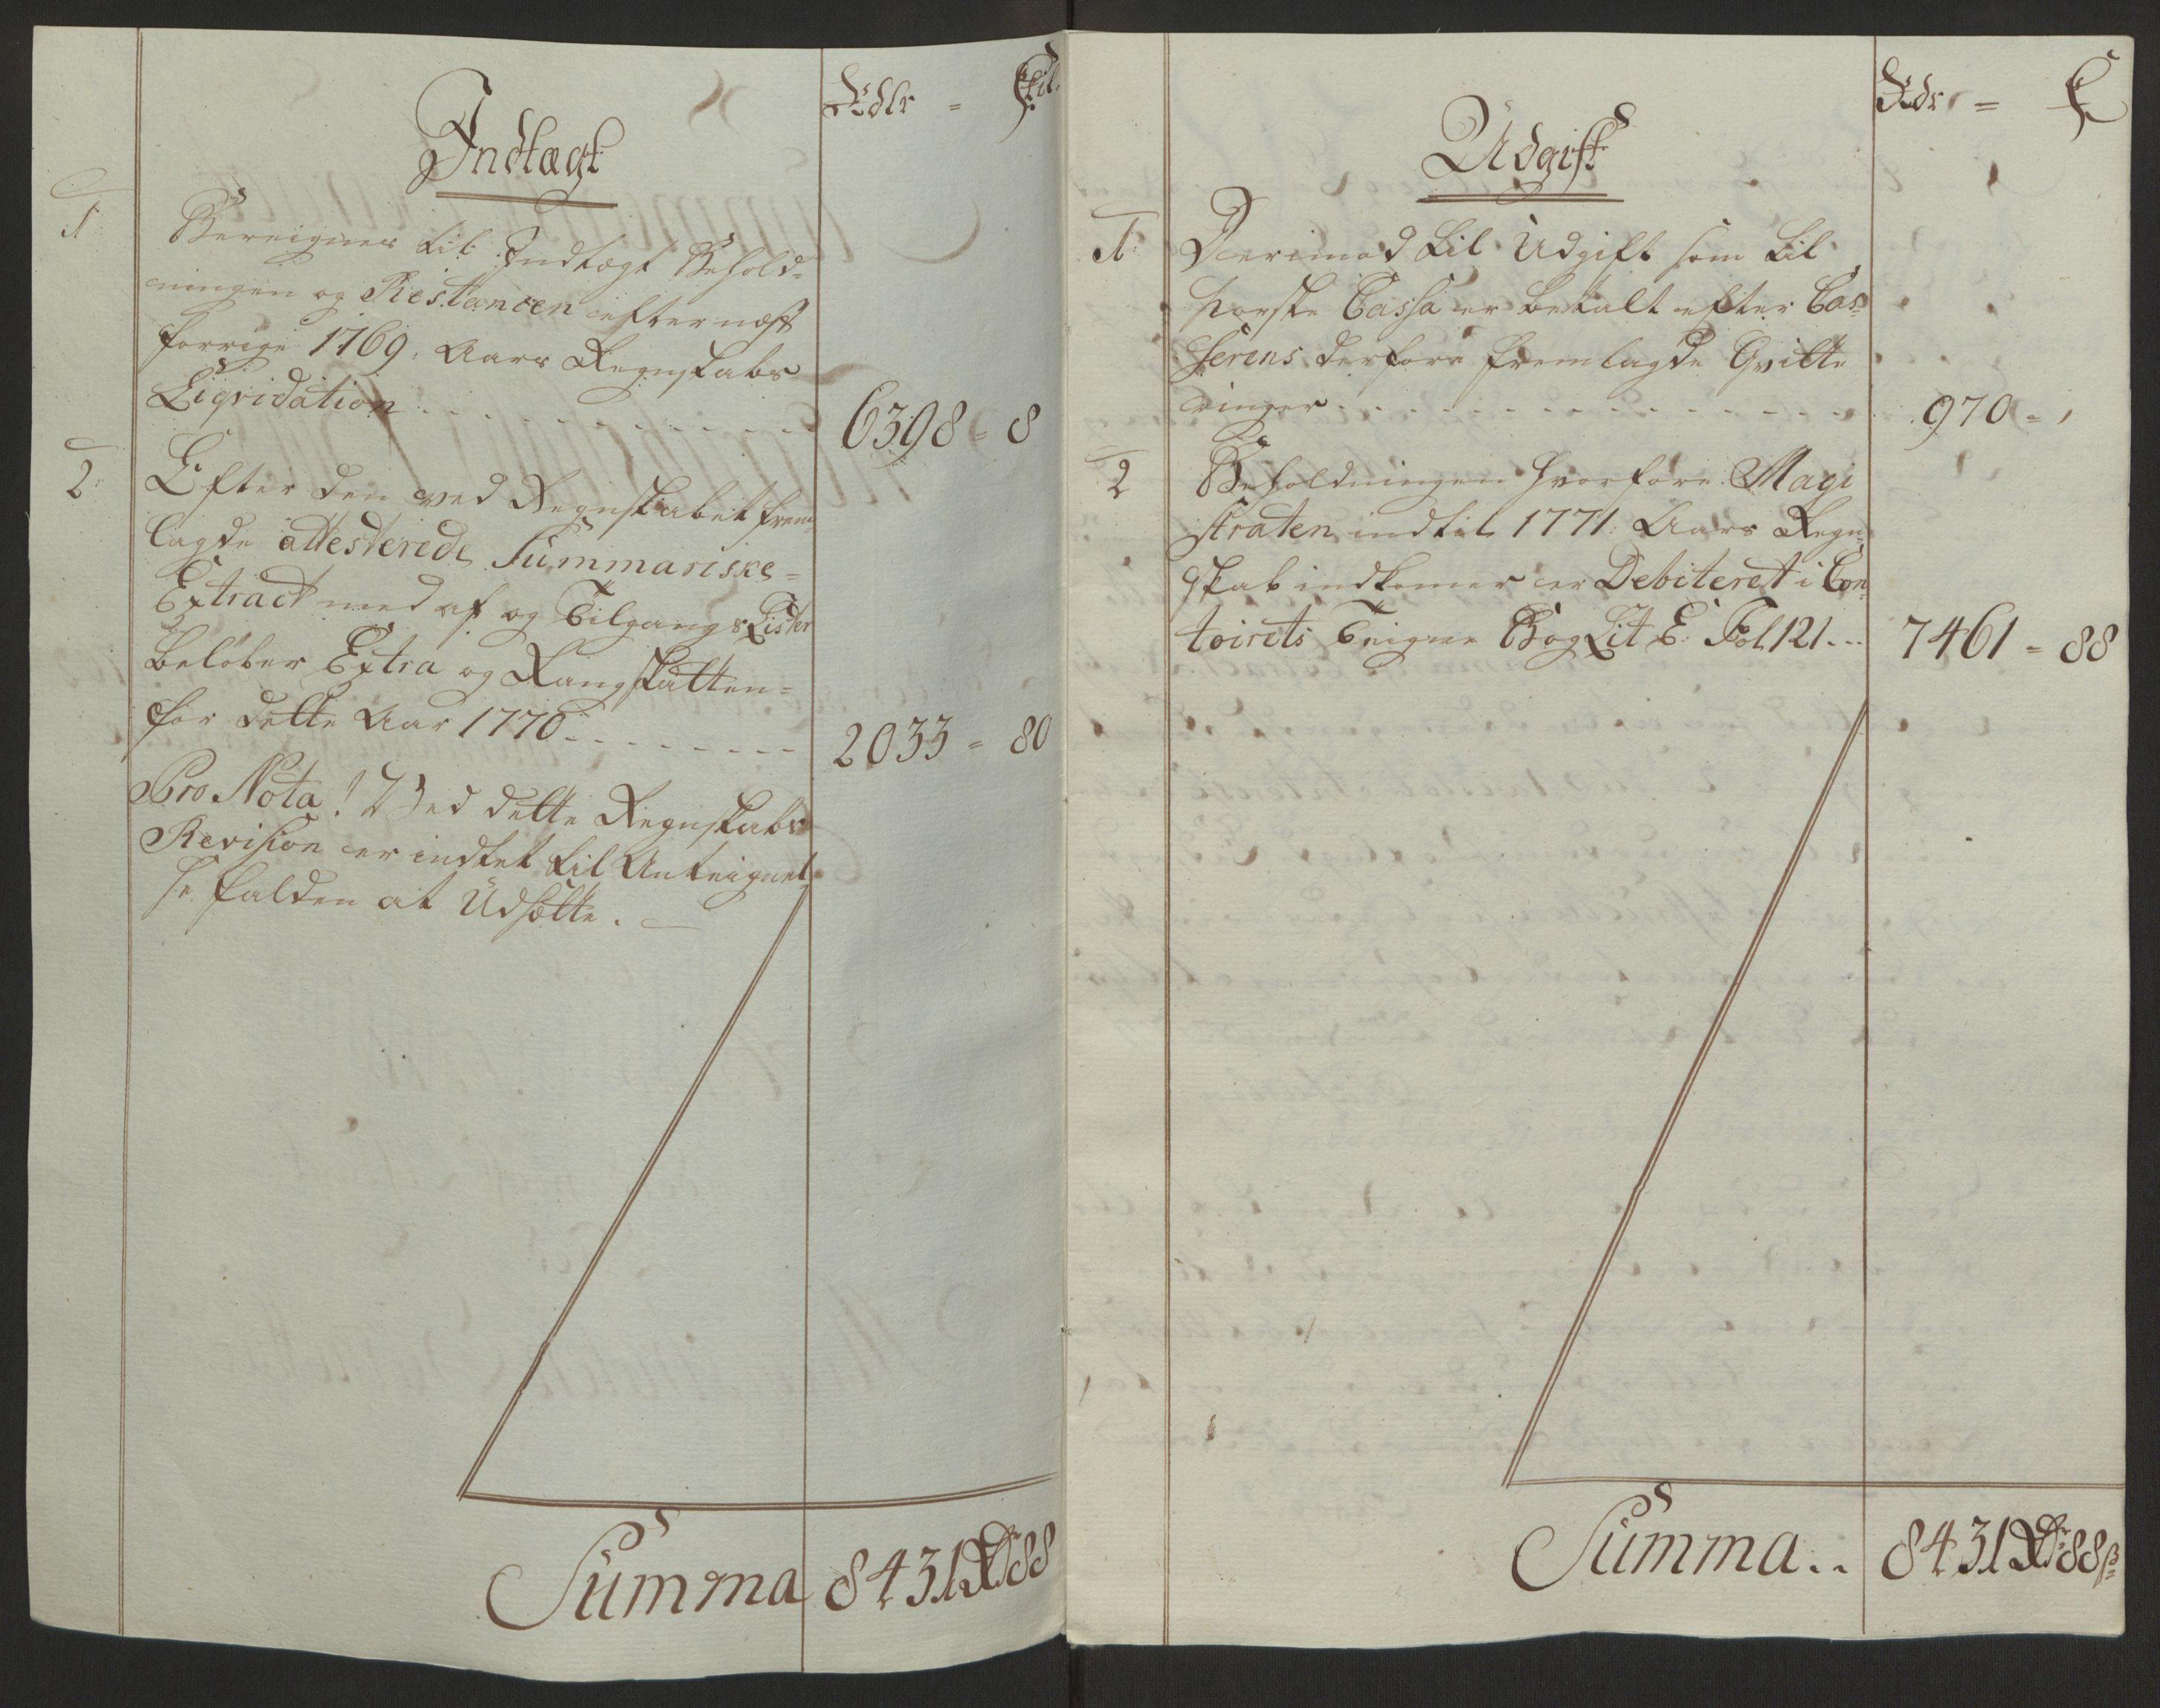 Rdlr = Skil.
Indtægt
1:
Bereignes til Indtægt Behold-
ningen og Restancen efter næst
forrige 1769. Aars Regnskabs
Liqvidation . . . . . . . . . . . . 6398 = 8
2:
Efter den ved Regnskabet frem-
lagde attesterede Summariske =
Extract med af og Tilgangs Lister
beløber Extra og Rangskatten =
for dette Aar 1770 - - - - - - - - 2033 = 80
Pro Nota! Ved dette Regnskabs
Revision er indtet til Anteignel-
se falden at Udsætte. —
Summa 8431 Rdr 88
Rdr = S
Udgift
1:
Derimod til Udgift som til
norske Cassa er betalt efter Cas-
serens derfore fremlagde Qvitte
ringer - - - - - - - - - - - - - 970 = ,
2
Beholdningen hvorfore Magi
straten indtil 1771: Aars Regn-
skab indkomer er Debiteret i Con-
toirets Teigne Bog Lit E: Fol 121 - - 7461 = 88
Summa . . 8431 Rdr 88 ß